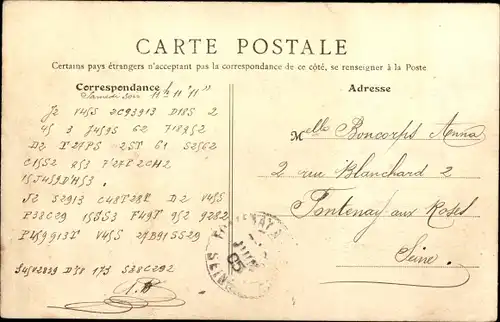 CARTE POSTALE
Certains pays étrangers n'acceptant pas la correspondance de ce côté, se renseigner à la Poste
Correspondance
Adresse
Samedi soir 11h "11"
J2 V4SS 2C93913 D18S 2
4S 3 J4S9S 62 718952
D2 X27PS 2ST 61 S2562
C1SS2 853 7'27R2CH2
1SJ4S9D'HS3.
J2 S2913 C48T28R D2 V4SS
P38C29 15JS3 F49T 952 9282
P2S9913X V4SS 27B91SS29
S4S02829 D'78 173 S38C292
Melle Boncorps Anna
2 rue Blanchard 2
Fontenay aux Roses
Seine.
FONTENAY A
JUIN
05
SEINE